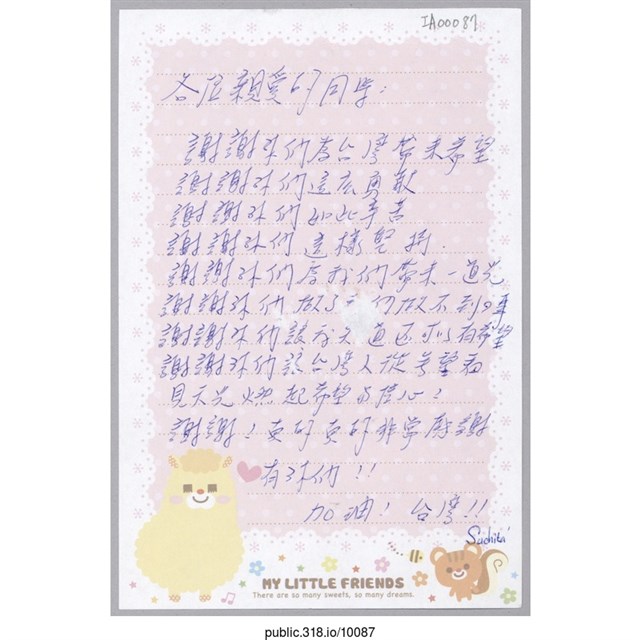 IA00087
各位親愛的同學:
謝謝你們為台灣帶來希望
謝謝你們這麼勇敢
謝謝你們如此辛苦
謝謝你們這樣堅持.
謝謝你們為我們帶來一道光
謝謝你們做了我們做不到的事
謝謝你們讓我知道還可以有希望
謝謝你們讓台灣人從無望看
見天光燃起希望與信心!
謝謝!真的真的非常感謝
有你們!!
加油!台灣!!
Suchita
MY LITTLE FRIENDS
There are so many sweets, so many dreams.
public.318.io/10087